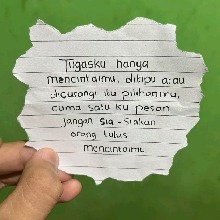 Tugasku hanya
mencintaimu, ditipu atau
dicurangi itu pilihanmu,
cuma satu ku pesan
jangan sia-siakan
orang tulus
mencintaimu